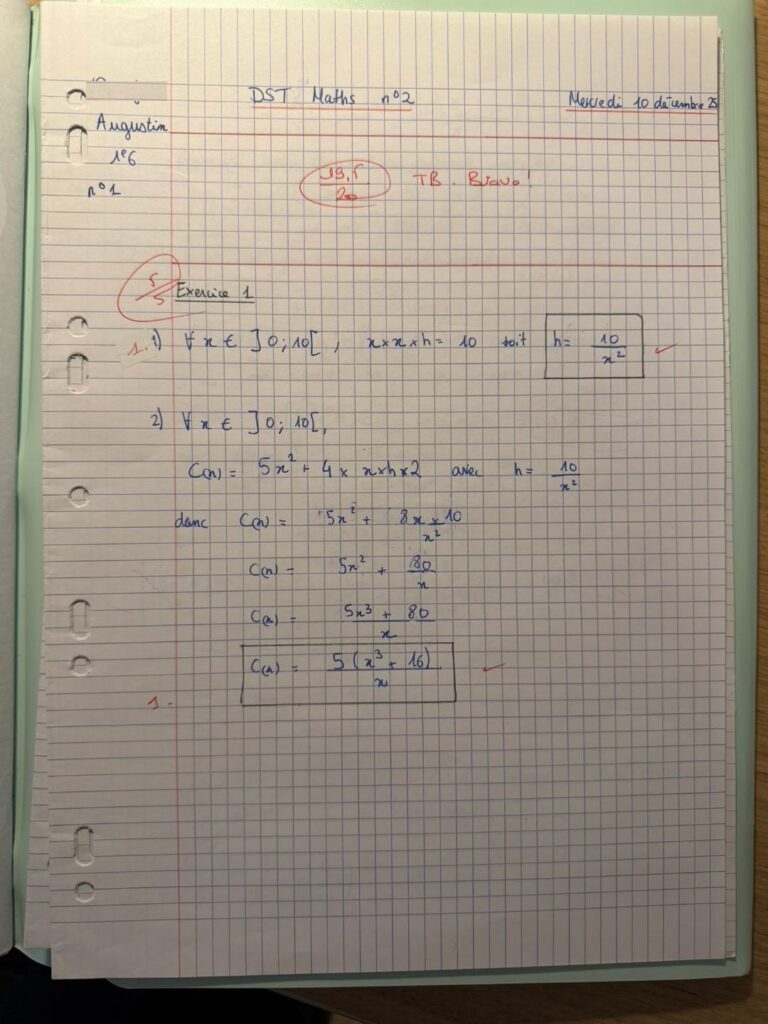 DST Maths n°2
Mercredi 10 décembre 25
Augustin
1e6
n°1
19,5/20 TB. Bravo!
5/5
Exercice 1
1. 1) ∀ x ∈ ]0;10[, x × x × h = 10 soit h = 10/x²
2) ∀ x ∈ ]0;10[,
C(x) = 5x² + 4 × x × h × 2 avec h = 10/x²
donc C(x) = 5x² + 8x × 10/x²
C(x) = 5x² + 80/x
C(x) = 5x³ + 80/x
C(x) = 5(x³ + 16)/x
1.